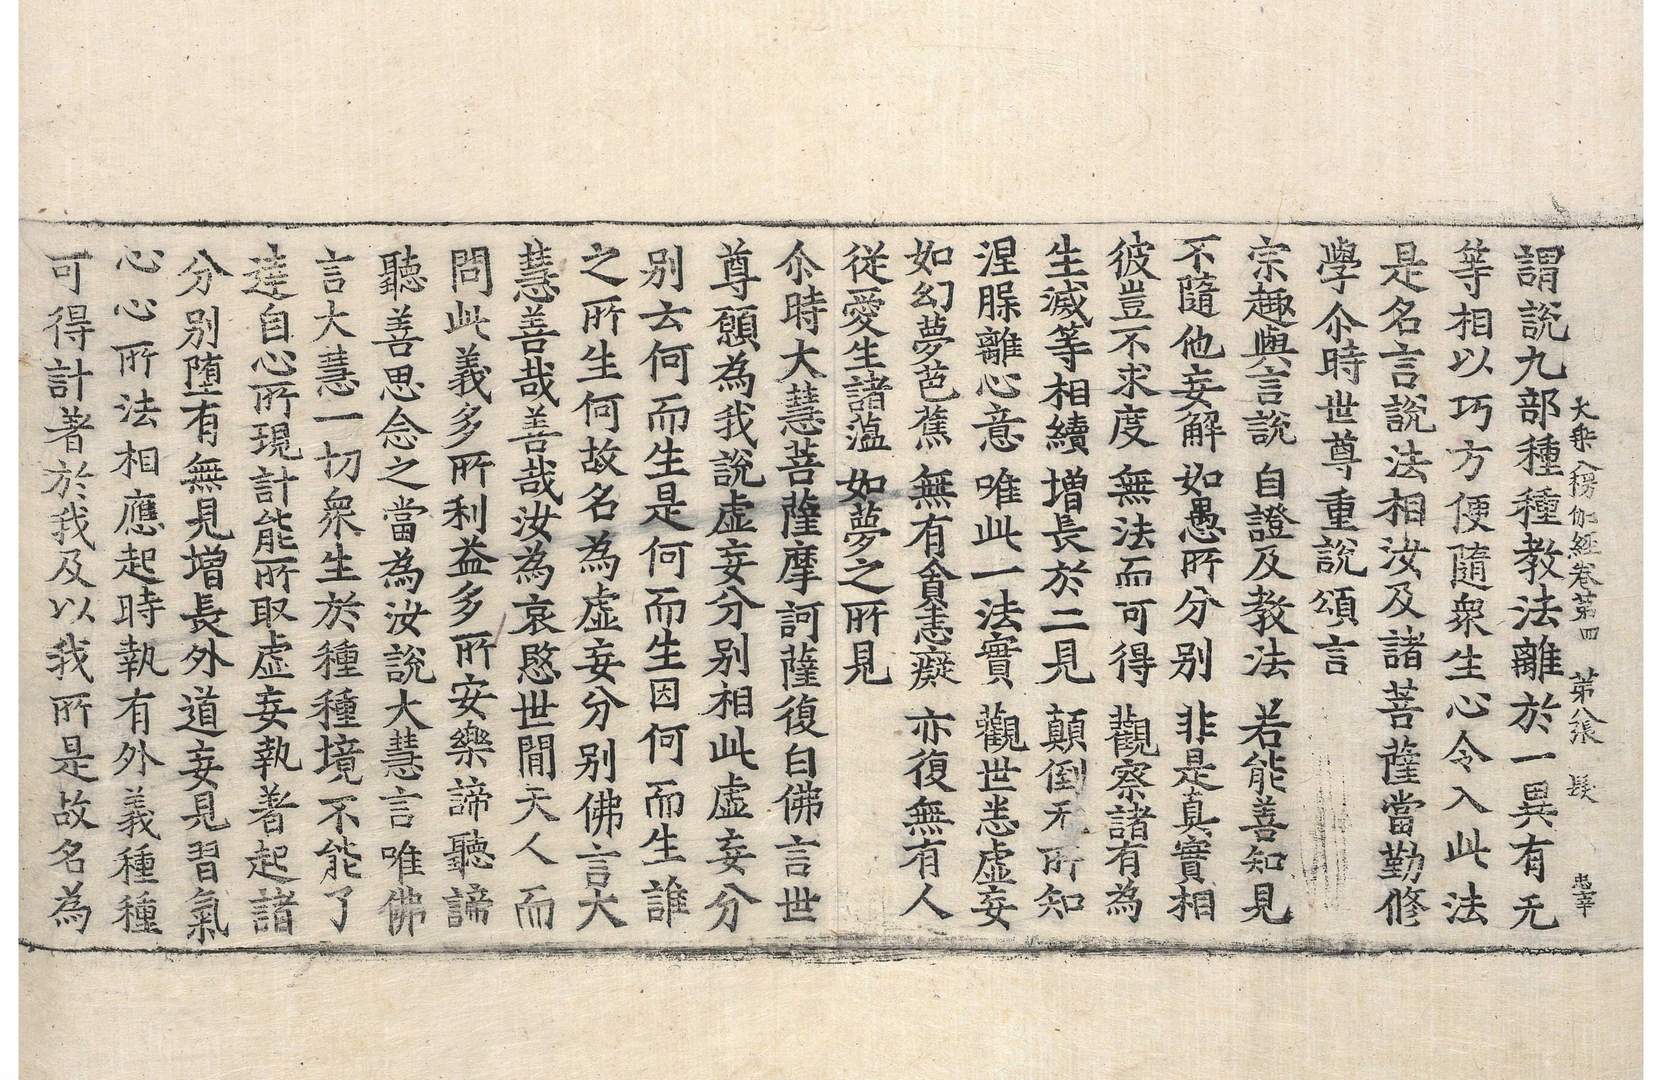 大乘入楞伽經卷第四　第八張　髮　忠幸
謂說九部種種教法離於一異有无
等相以巧方便隨衆生心令入此法
是名言說法相汝及諸菩薩當勤修
學尒時世尊重說頌言
宗趣與言說　自證及教法　若能善知見
不隨他妄解　如愚所分別　非是真實相
彼豈不求度　無法而可得　觀察諸有為
生滅等相續　增長於二見　顛倒无所知
涅脲離心意　唯此一法實　觀世悉虛妄
如幻夢芭蕉　無有貪恚癡　亦復無有人
從愛生諸薀　如夢之所見
尒時大慧菩薩摩訶薩復白佛言世
尊願為我說虛妄分別相此虛妄分
別云何而生是何而生因何而生誰
之所生何故名為虛妄分別佛言大
慧善哉善哉汝為哀愍世間天人而
問此義多所利益多所安樂諦聽諦
聽善思念之當為汝說大慧言唯佛
言大慧一切衆生於種種境不能了
達自心所現計能所取虛妄執著起諸
分別墮有無見增長外道妄見習氣
心心所法相應起時執有外義種種
可得計著於我及以我所是故名為